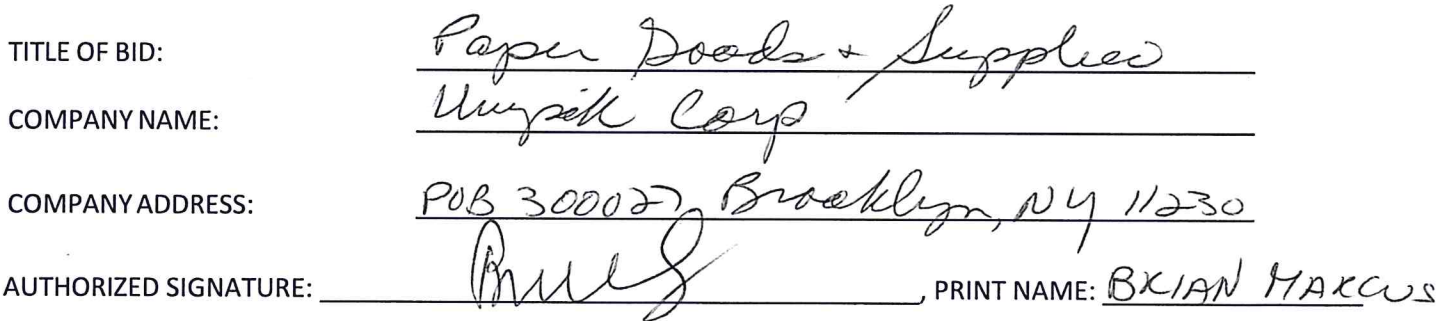 TITLE OF BID: Paper Goods + Supplies
COMPANY NAME: Unipak Corp
COMPANY ADDRESS: POB 300027, Brooklyn, NY 11230
AUTHORIZED SIGNATURE: , PRINT NAME: BRIAN MARCUS